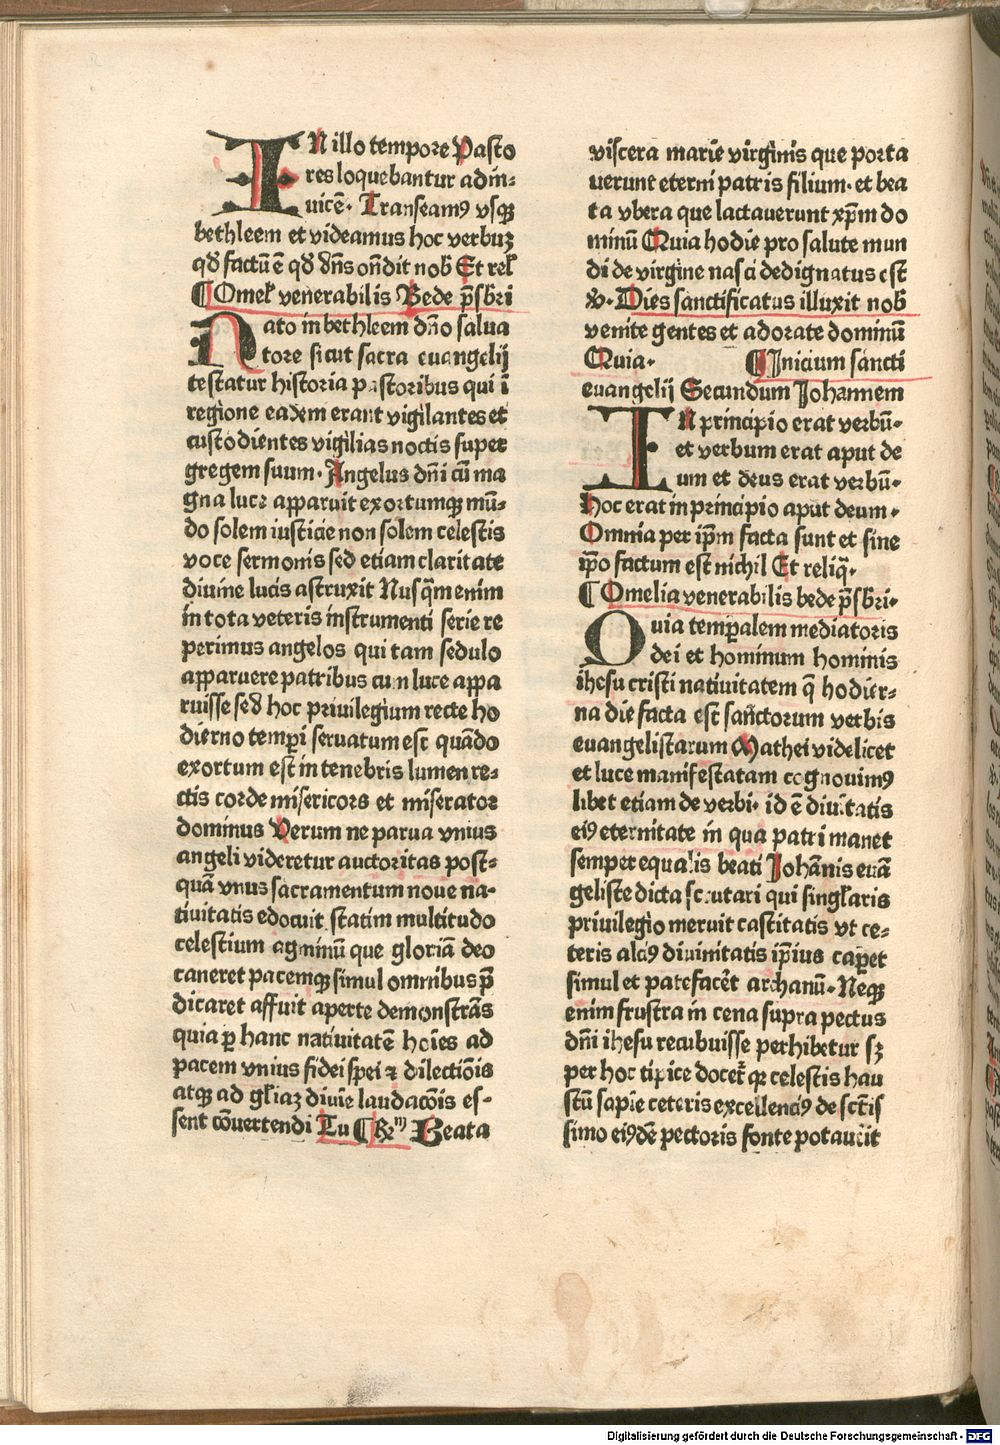 IN illo tempore Pasto
res loquebantur ad in⸗
uicē· Transeamꝰ vsqꝫ
bethleem et videamus hoc verbuꝫ
qđ factū ē qđ dn̄s on̄dit nob̄ Et relꝭ
¶ Omelꝭ venerabilis Bede p̄sbri
Nato in bethleem dn̄o salua
tore sicut sacra euangelij
testatur historia pastoribus qui ī
regione eadem erant vigilantes et
custodientes vigilias noctis super
gregem suum· Angelus dn̄i cū ma
gna luce apparuit exortumqꝫ mū⸗
do solem iusticie non solem celestis
voce sermonis sed etiam claritate
diuine lucis astruxit Nusq̄m enim
in tota veteris instrumenti serie re
perimus angelos qui tam sedulo
apparuere patribus cum luce appa
ruisse sed hoc priuilegium recte ho
dierno temꝑi seruatum est quādo
exortum est in tenebris lumen re⸗
ctis corde misericors et miserator
dominus Verum ne parua vnius
angeli videretur auctoritas post⸗
quā vnus sacramentum noue na⸗
tiuitatis edocuit statim multitudo
celestium agminū que gloriā deo
caneret pacemqꝫ simul omnibus p̄
dicaret affuit aperte demonstrās
quia ꝑ hanc natiuitatē hoīes ad
pacem vnius fidei spei ⁊ dilectiōis
atqꝫ ad gl̄iaꝫ diuīe laudacōis es⸗
sent cōuertendi Tu ¶ ℟ Beata
viscera marie virginis que porta
uerunt eterni patris filium· et bea
ta vbera que lactauerunt xp̄m do
minū Quia hodie pro salute mun
di de virgine nasci dedignatus est
℣· Dies sanctificatus illuxit nob̄
venite gentes et adorate dominū
Quia· ¶ Inicium sancti
euangelij Secundum Johannem
IN principio erat verbū⸗
et verbum erat aput de
um et deus erat verbū⸗
hoc erat in principio aput deum·
Omnia per ip̄m facta sunt et sine
ip̄o factum est nichil Et reliq̄·
¶ Omelia venerabilis bede p̄sbri·
Quia temꝑalem mediatoris
dei et hominum hominis
ihesu cristi natiuitatem q̄ hodier⸗
na die facta est sanctorum verbis
euangelistarum Mathei videlicet
et luce manifestatam cognouimꝰ
libet etiam de verbi· id ē diuitatis
eiꝰ eternitate in qua patri manet
semper equalis beati Johānis euā
geliste dicta scrutari qui singlꝭaris
priuilegio meruit castitatis vt ce⸗
teris alciꝰ diuinitatis ip̄ius caꝑet
simul et patefacēt archanū· Neqꝫ
enim frustra in cena supra pectus
dn̄i ihesu recubuisse perhibetur sꝫ
per hoc tipice docet̄ qꝛ celestis hau
stū sapīe ceteris excellenciꝰ de sct̄is
simo eiꝰdē pectoris fonte potauerit
Digitalisierung gefördert durch die Deutsche Forschungsgemeinschaft - DFG